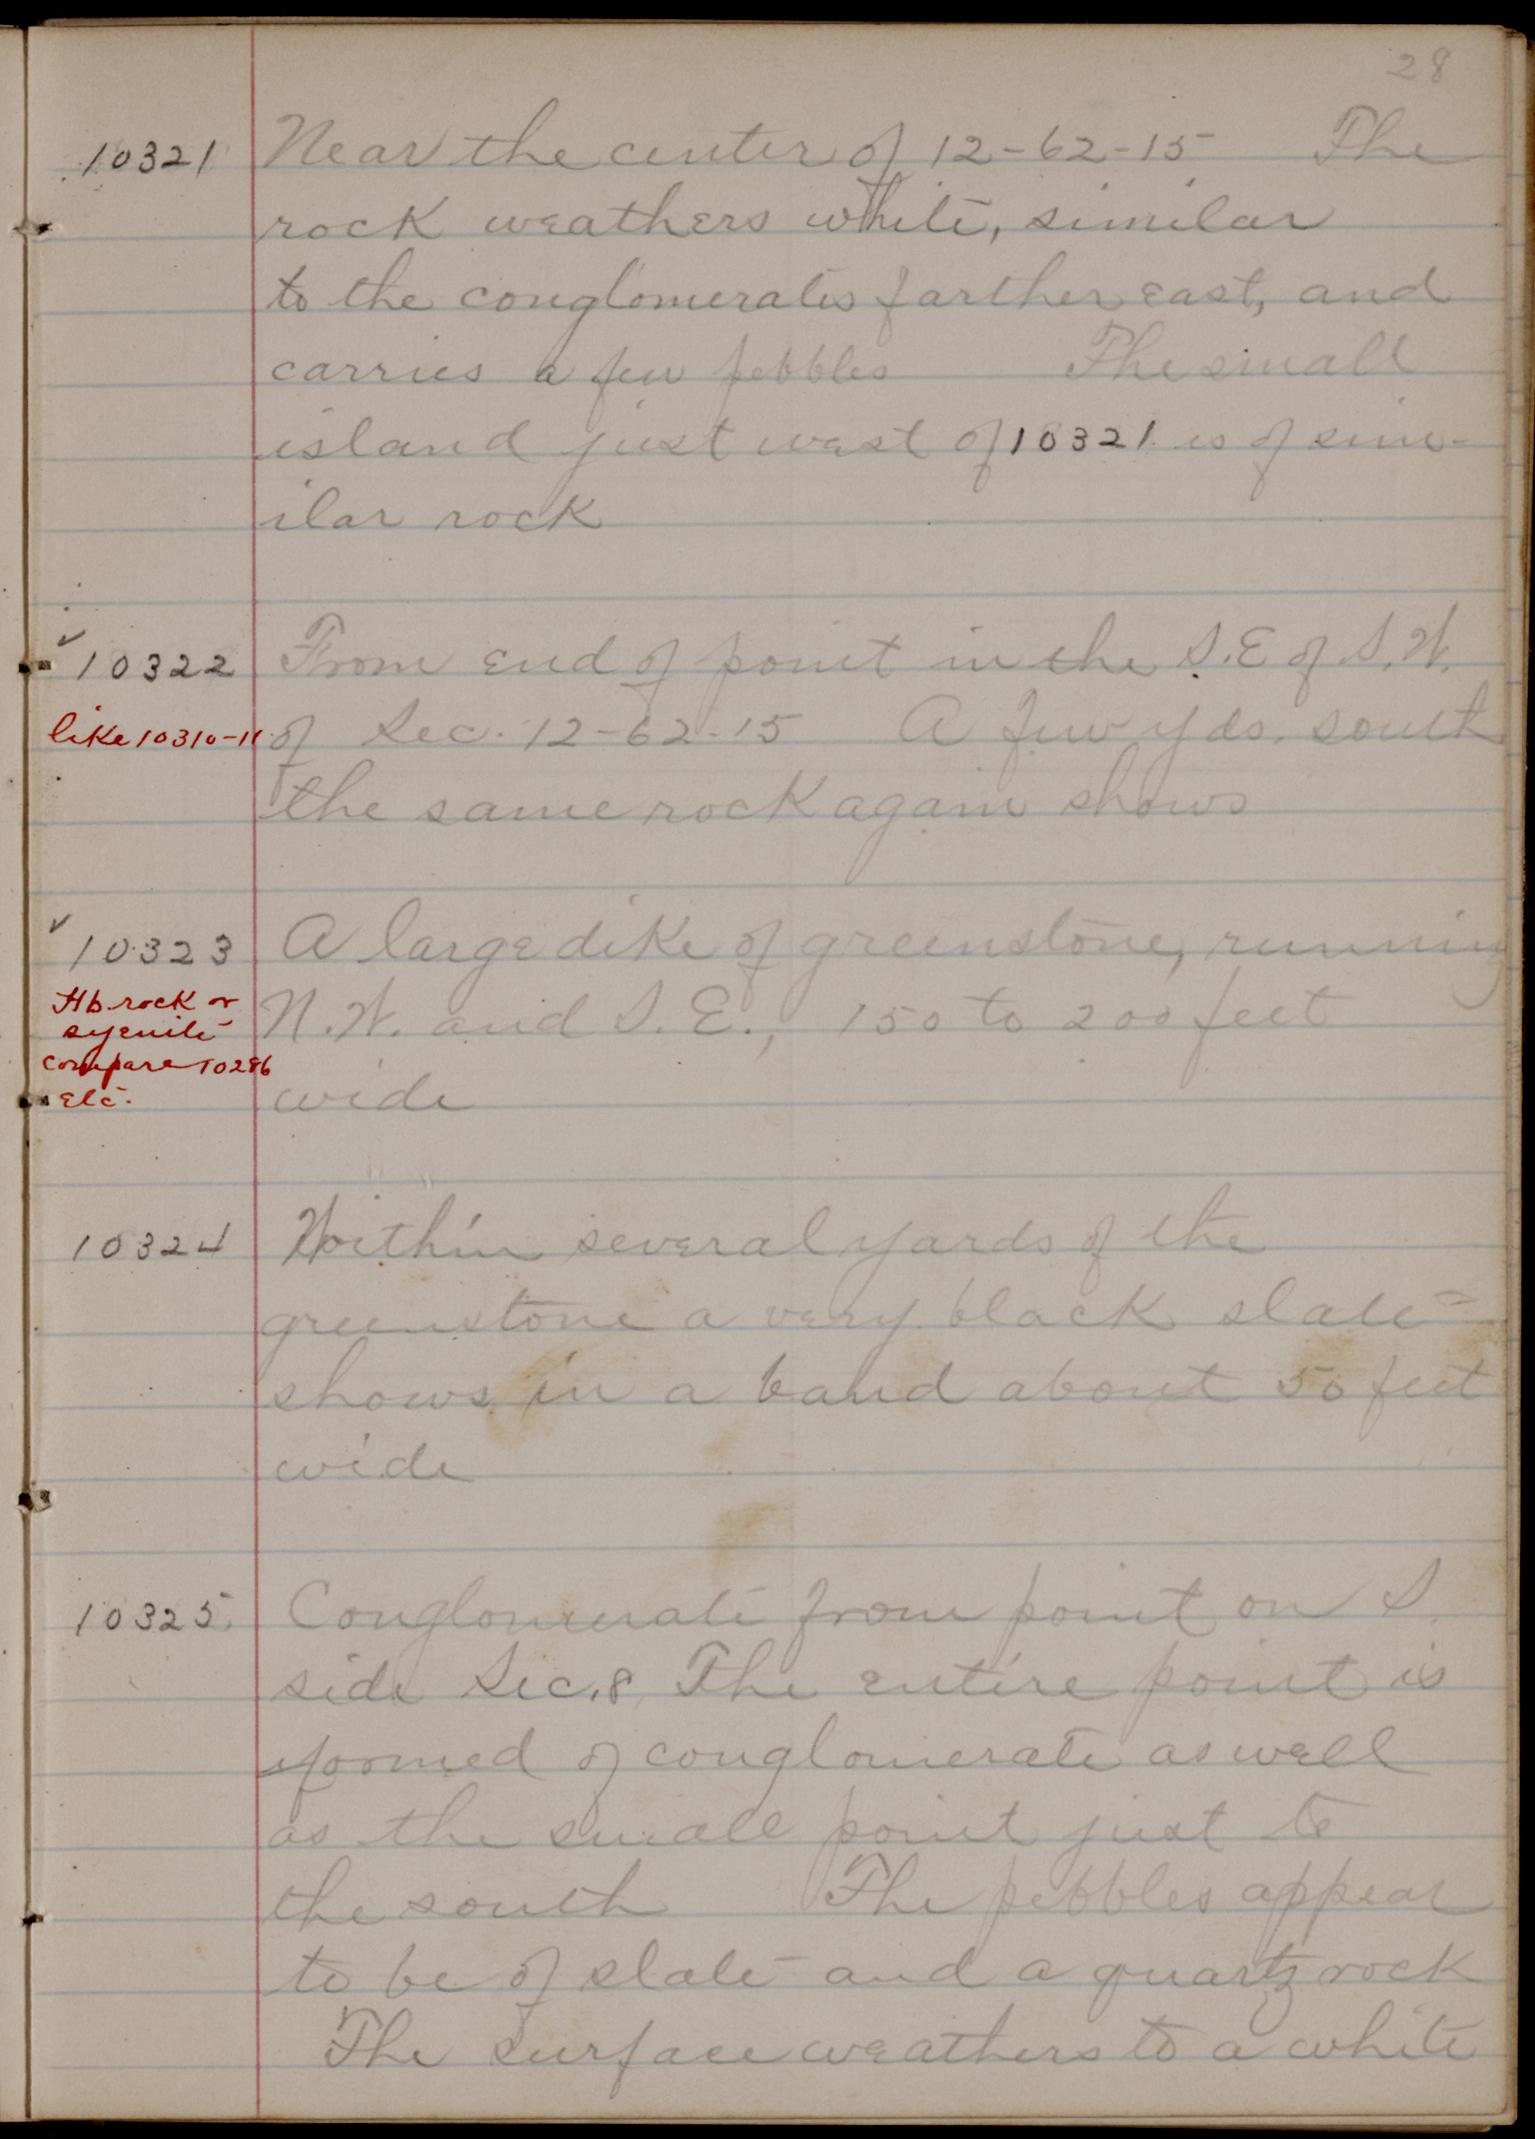 28
10321 Near the center of 12-62-15 The
rock weathers white, similar
to the conglomerates farther east, and
carries a few pebbles The small
island just west of 10321 is of sim-
ilar rock
✓ 10322 From end of point in the S.E of S.W.
like 10310-11 of Sec. 12-62-15 A few yds. south
the same rock again shows
✓ 10323 A large dike of greenstone, running
Hb. rock or
syenite N.W. and S.E., 150 to 200 feet
compare 10286
etc. wide
10324 Within several yards of the
greenstone a very black slate
shows in a band about 50 feet
wide
10325 Conglomerate from point on S.
side Sec. 8. The entire point is
formed of conglomerate as well
as the small point just to
the south The pebbles appear
to be of slate and a quartz rock
The surface weathers to a white